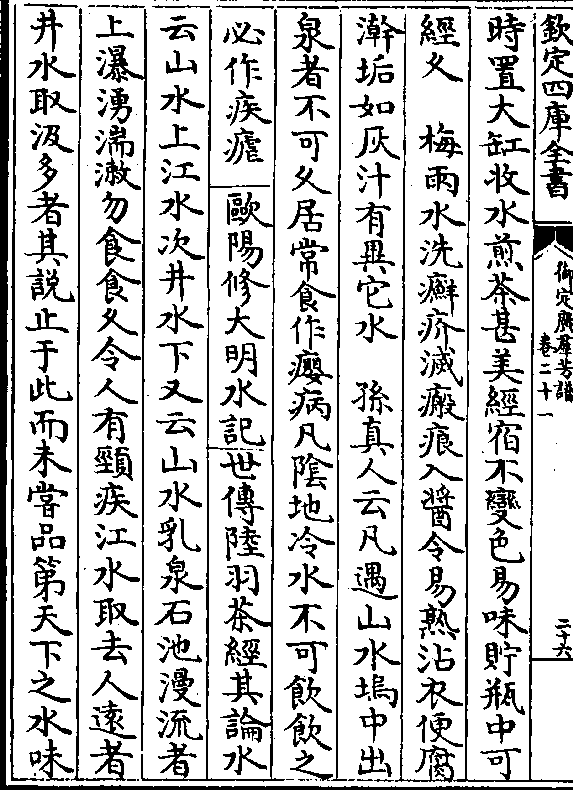 欽定四庫全書
御定廣羣芳譜
卷二十一
二十六
時置大缸收水煎茶甚美經宿不變色易味貯瓶中可
經久　梅雨水洗癬疥滅瘢痕入醬令易熟沾衣便腐
澣垢如灰汁有異它水　孫真人云凡遇山水塢中出
泉者不可久居常食作癭病凡陰地冷水不可飲飲之
必作疾瘧　歐陽修大明水記世傳陸羽茶經其論水
云山水上江水次井水下又云山水乳泉石池漫流者
上瀑湧湍漱勿食食久令人有頸疾江水取去人遠者
井水取汲多者其說止于此而未嘗品第天下之水味